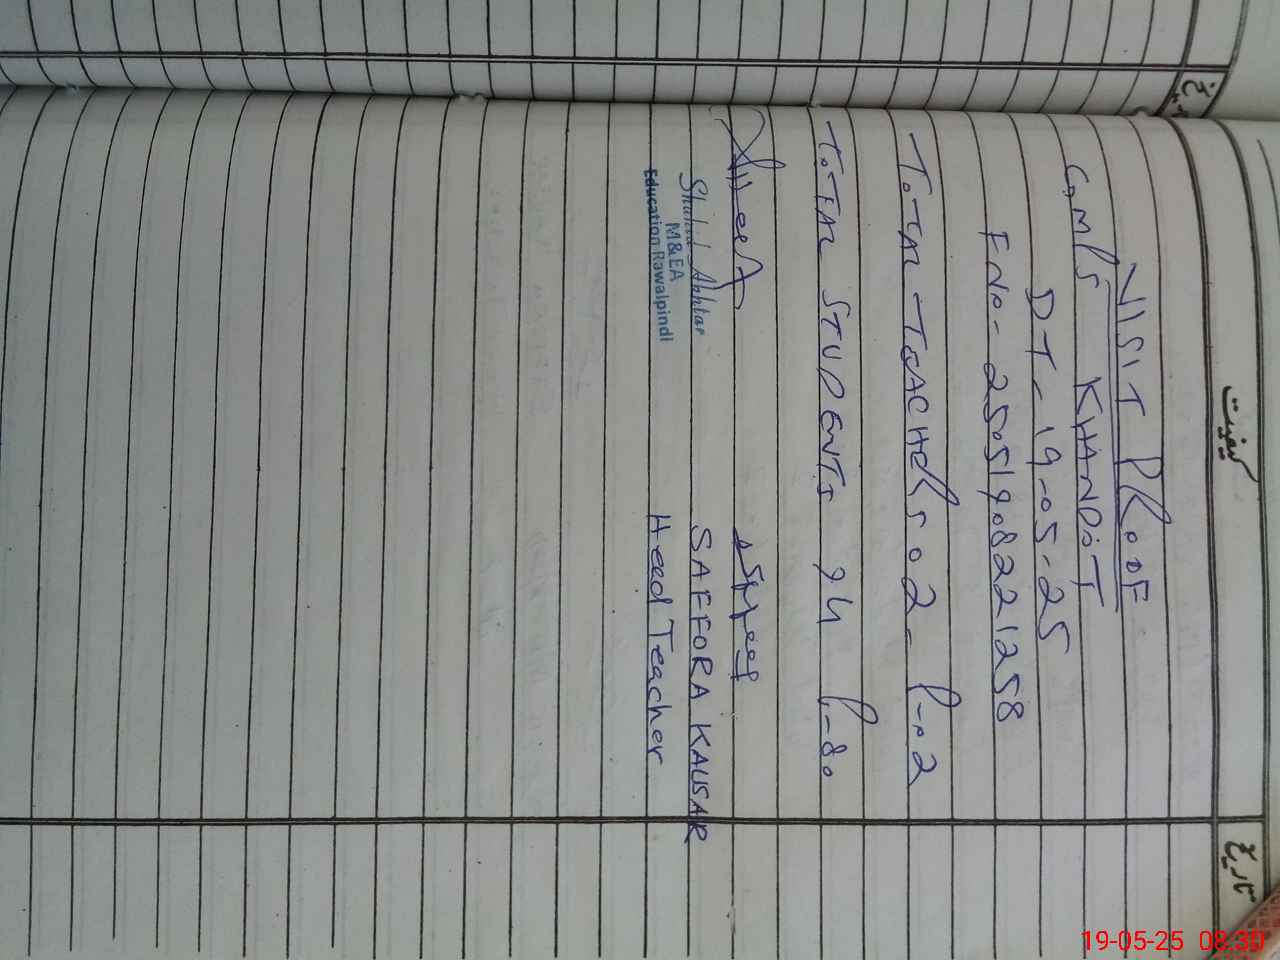 کیفیت
تاریخ
VISIT PROOF
GMPS KHANDOT
DT-19-05-25
FNO-25051908221258
TOTAL TEACHERS 02- P-02
TOTAL STUDENTS 94 P-80
Shahid Akhtar
M&EA
Education Rawalpindi
SAFFORA KAUSAR
Head Teacher
19-05-25 08:30